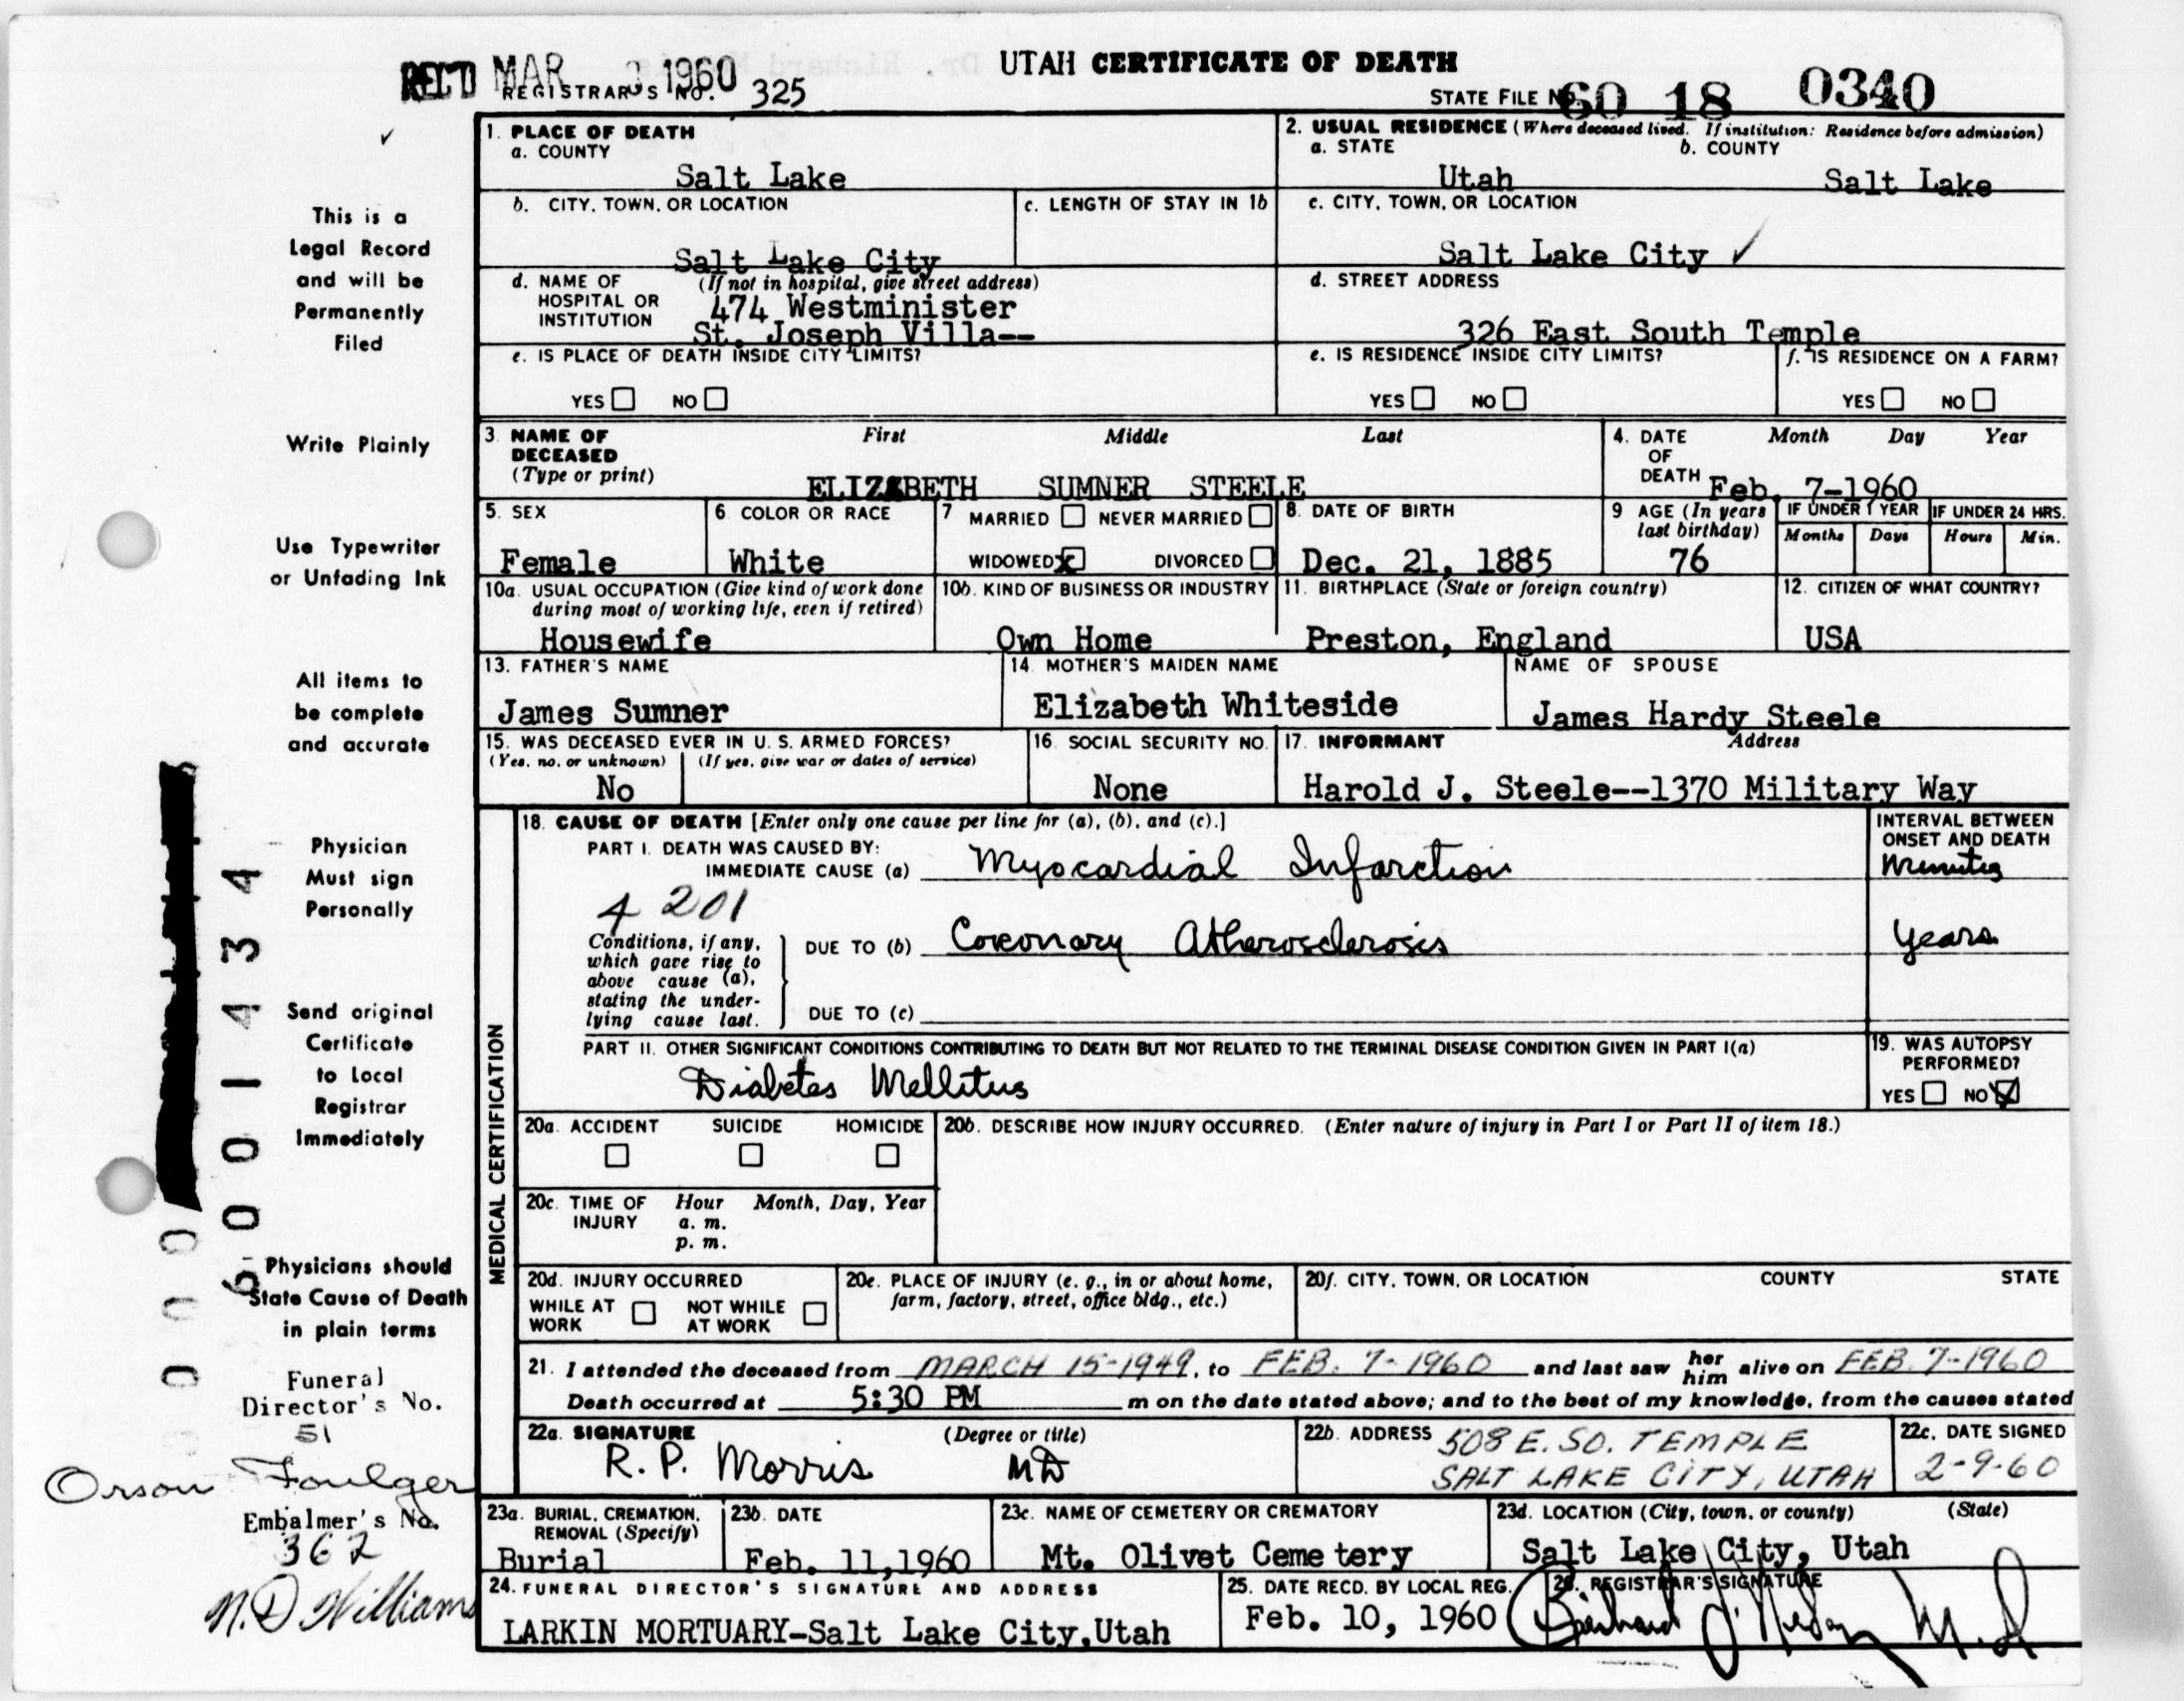 UTAH CERTIFICATE OF DEATH
REC'D MAR 3 1960
REGISTRAR'S NO. 325
STATE FILE NO. 60 18 0340
This is a
Legal Record
and will be
Permanently
Filed
Write Plainly
Use Typewriter
or Unfading Ink
All items to
be complete
and accurate
Physician
Must sign
Personally
Send original
Certificate
to Local
Registrar
Immediately
Physicians should
State Cause of Death
in plain terms
Funeral
Director's No.
51
Orson Foulger
Embalmer's No.
362
N.D Williams
6 0 0 1 4 3 4
1. PLACE OF DEATH
a. COUNTY
Salt Lake
2. USUAL RESIDENCE (Where deceased lived. If institution: Residence before admission)
a. STATE b. COUNTY
Utah Salt Lake
b. CITY, TOWN, OR LOCATION
Salt Lake City
c. LENGTH OF STAY IN 1b
c. CITY, TOWN, OR LOCATION
Salt Lake City ✓
d. NAME OF (If not in hospital, give street address)
HOSPITAL OR 474 Westminister
INSTITUTION St. Joseph Villa--
d. STREET ADDRESS
326 East South Temple
e. IS PLACE OF DEATH INSIDE CITY LIMITS?
YES NO
e. IS RESIDENCE INSIDE CITY LIMITS?
YES NO
f. IS RESIDENCE ON A FARM?
YES NO
3. NAME OF First Middle Last
DECEASED
(Type or print) ELIZABETH SUMNER STEELE
4. DATE Month Day Year
OF
DEATH Feb. 7-1960
5. SEX
Female
6. COLOR OR RACE
White
7 MARRIED NEVER MARRIED
WIDOWED x DIVORCED
8. DATE OF BIRTH
Dec. 21, 1885
9 AGE (In years
last birthday)
76
IF UNDER 1 YEAR
Months Days
IF UNDER 24 HRS.
Hours Min.
10a. USUAL OCCUPATION (Give kind of work done
during most of working life, even if retired)
Housewife
10b. KIND OF BUSINESS OR INDUSTRY
Own Home
11. BIRTHPLACE (State or foreign country)
Preston, England
12. CITIZEN OF WHAT COUNTRY?
USA
13. FATHER'S NAME
James Sumner
14. MOTHER'S MAIDEN NAME
Elizabeth Whiteside
NAME OF SPOUSE
James Hardy Steele
15. WAS DECEASED EVER IN U. S. ARMED FORCES?
(Yes, no, or unknown) (If yes, give war or dates of service)
No
16. SOCIAL SECURITY NO.
None
17. INFORMANT Address
Harold J. Steele--1370 Military Way
MEDICAL CERTIFICATION
18. CAUSE OF DEATH [Enter only one cause per line for (a), (b), and (c).]
PART I. DEATH WAS CAUSED BY:
IMMEDIATE CAUSE (a) Myocardial Infarction
INTERVAL BETWEEN
ONSET AND DEATH
Minutes
4 201
Conditions, if any,
which gave rise to
above cause (a),
stating the under-
lying cause last.
DUE TO (b) Coronary Atherosclerosis
Years
DUE TO (c)
PART II. OTHER SIGNIFICANT CONDITIONS CONTRIBUTING TO DEATH BUT NOT RELATED TO THE TERMINAL DISEASE CONDITION GIVEN IN PART I(a)
Diabetes Mellitus
19. WAS AUTOPSY
PERFORMED?
YES NO ✓
20a. ACCIDENT SUICIDE HOMICIDE
20b. DESCRIBE HOW INJURY OCCURRED. (Enter nature of injury in Part I or Part II of item 18.)
20c. TIME OF Hour Month, Day, Year
INJURY a. m.
p. m.
20d. INJURY OCCURRED
WHILE AT NOT WHILE
WORK AT WORK
20e. PLACE OF INJURY (e. g., in or about home,
farm, factory, street, office bldg., etc.)
20f. CITY, TOWN, OR LOCATION COUNTY STATE
21. I attended the deceased from MARCH 15-1949, to FEB. 7-1960 and last saw her him alive on FEB. 7-1960
Death occurred at 5:30 PM m on the date stated above; and to the best of my knowledge, from the causes stated
22a. SIGNATURE (Degree or title)
R. P. Morris MD
22b. ADDRESS 508 E. SO. TEMPLE
SALT LAKE CITY, UTAH
22c. DATE SIGNED
2-9-60
23a. BURIAL, CREMATION,
REMOVAL (Specify)
Burial
23b. DATE
Feb. 11,1960
23c. NAME OF CEMETERY OR CREMATORY
Mt. Olivet Cemetery
23d. LOCATION (City, town, or county) (State)
Salt Lake City, Utah
24. FUNERAL DIRECTOR'S SIGNATURE AND ADDRESS
LARKIN MORTUARY-Salt Lake City,Utah
25. DATE RECD. BY LOCAL REG.
Feb. 10, 1960
26. REGISTRAR'S SIGNATURE